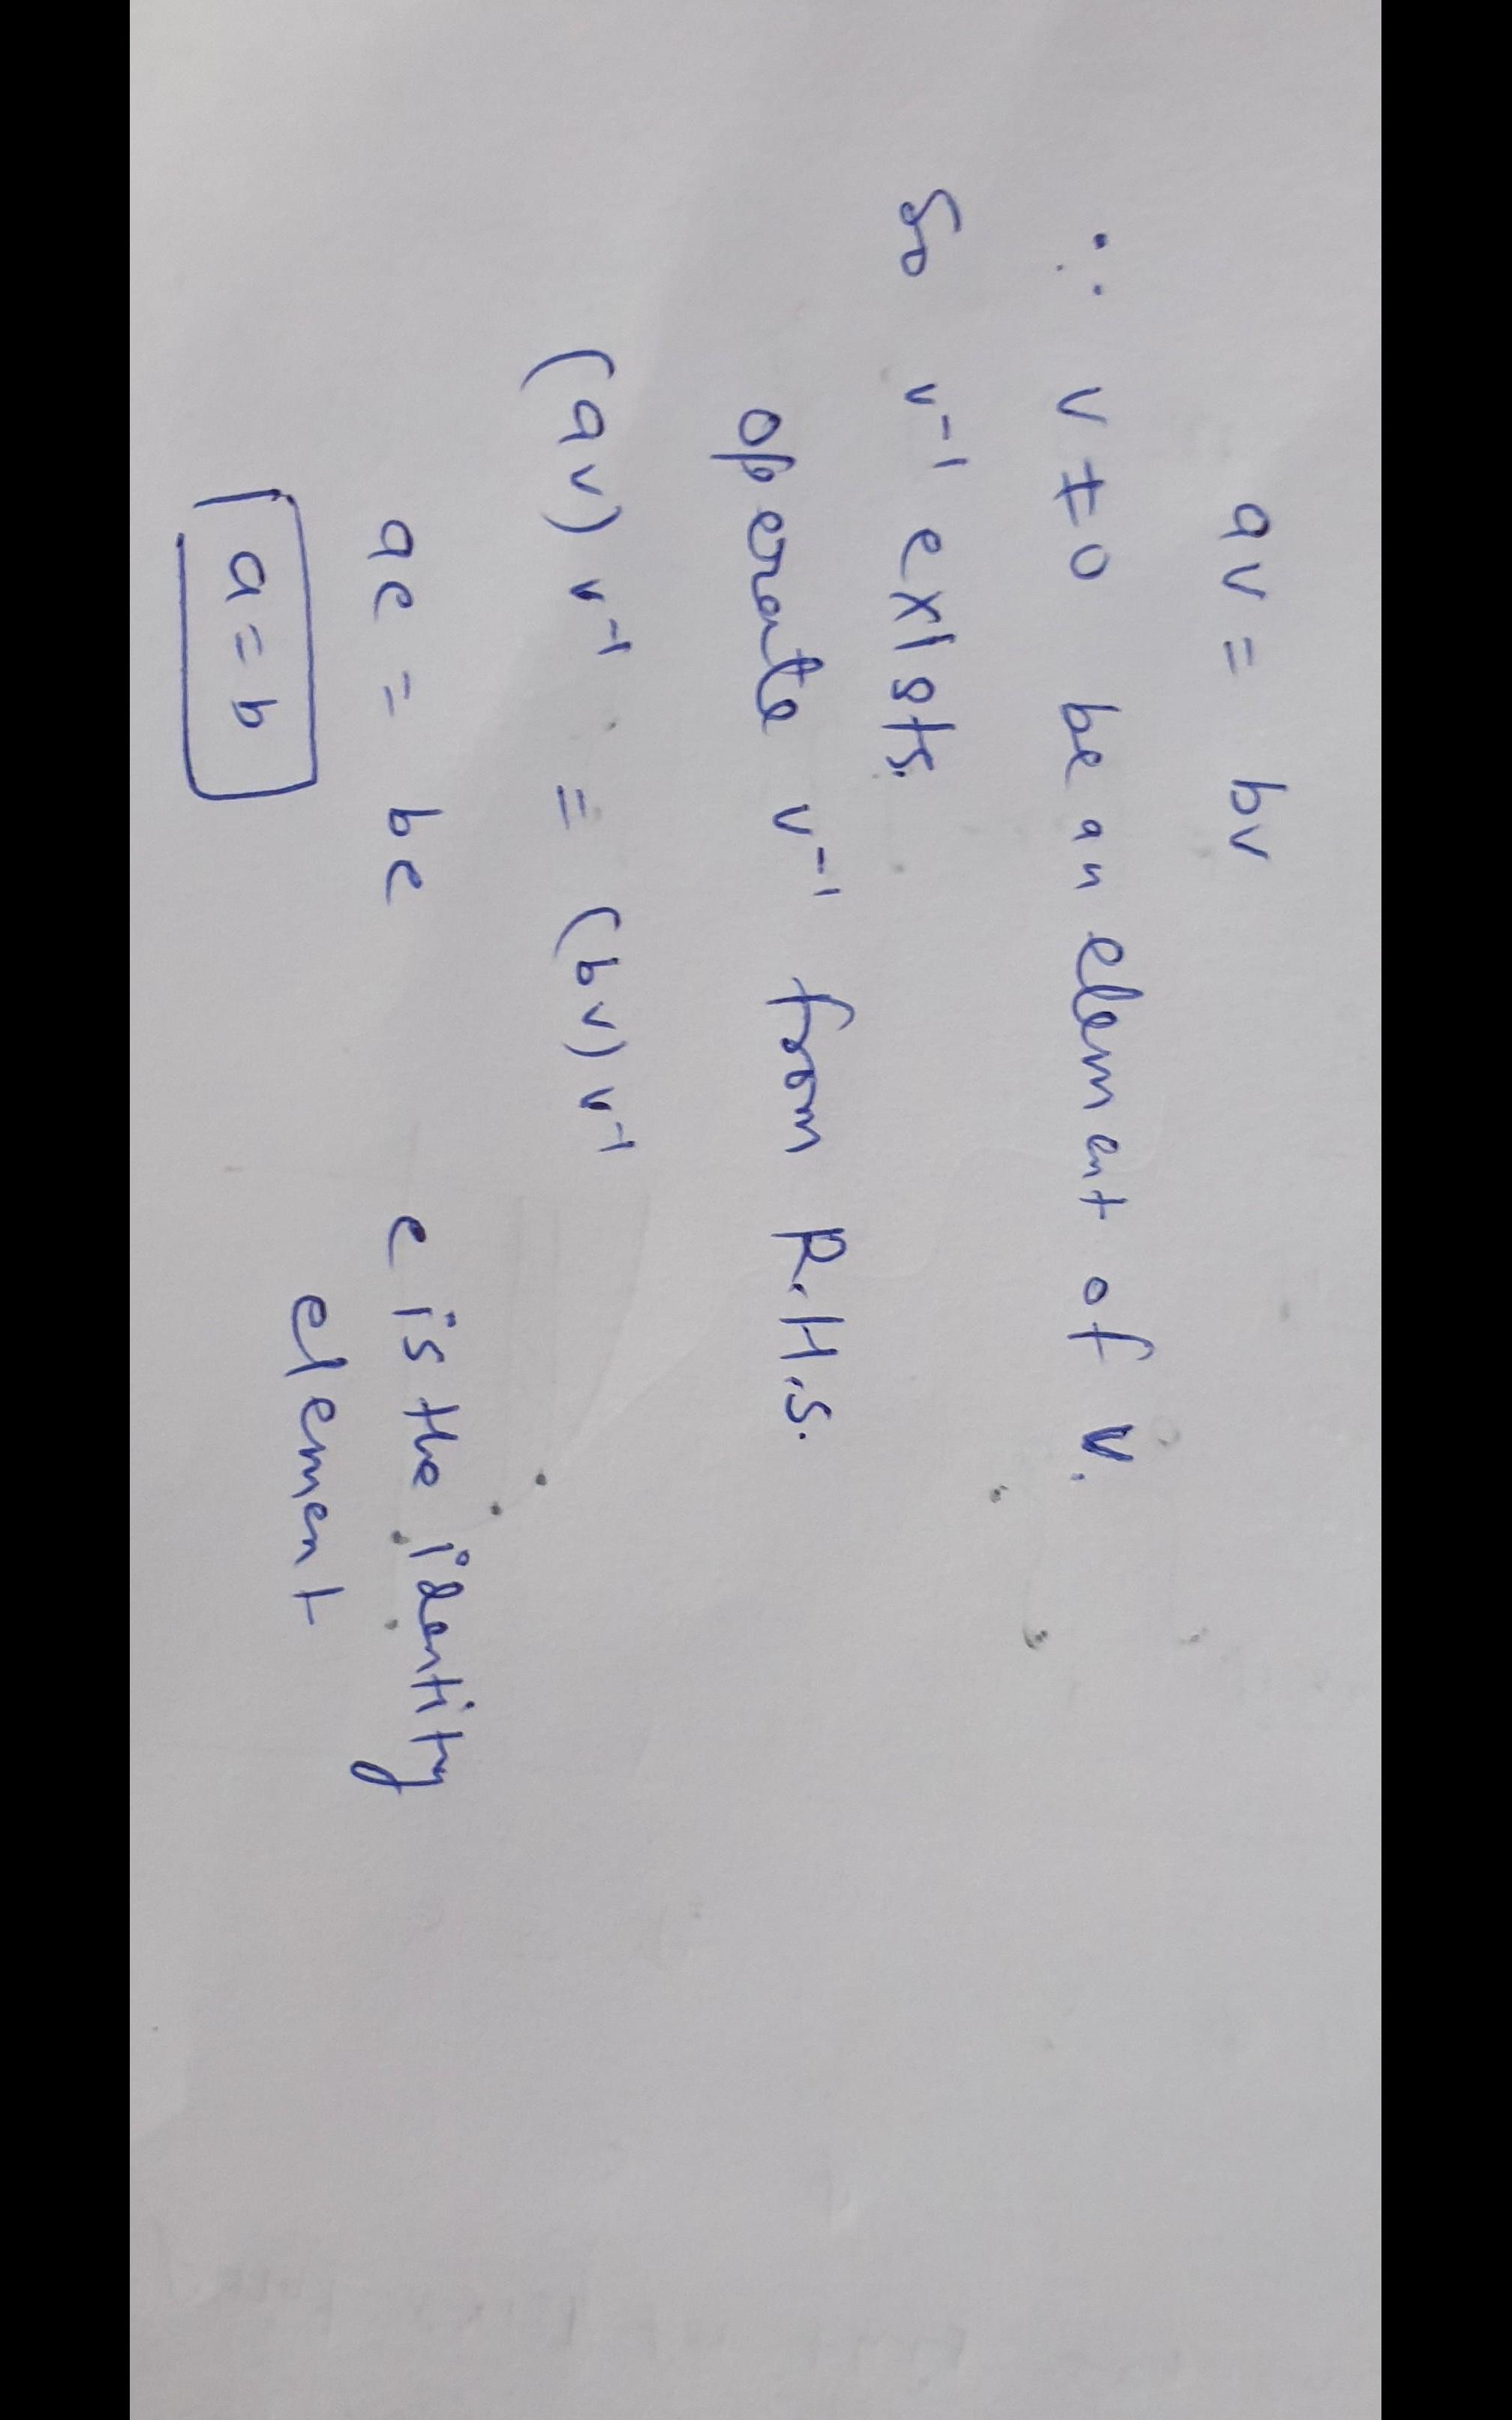 av = bv
∵ v ≠ 0 be an element of V.
So v⁻¹ exists.
operate v⁻¹ from R.H.S.
(av) v⁻¹ = (bv) v⁻¹
ae = be e is the identity
element
a = b